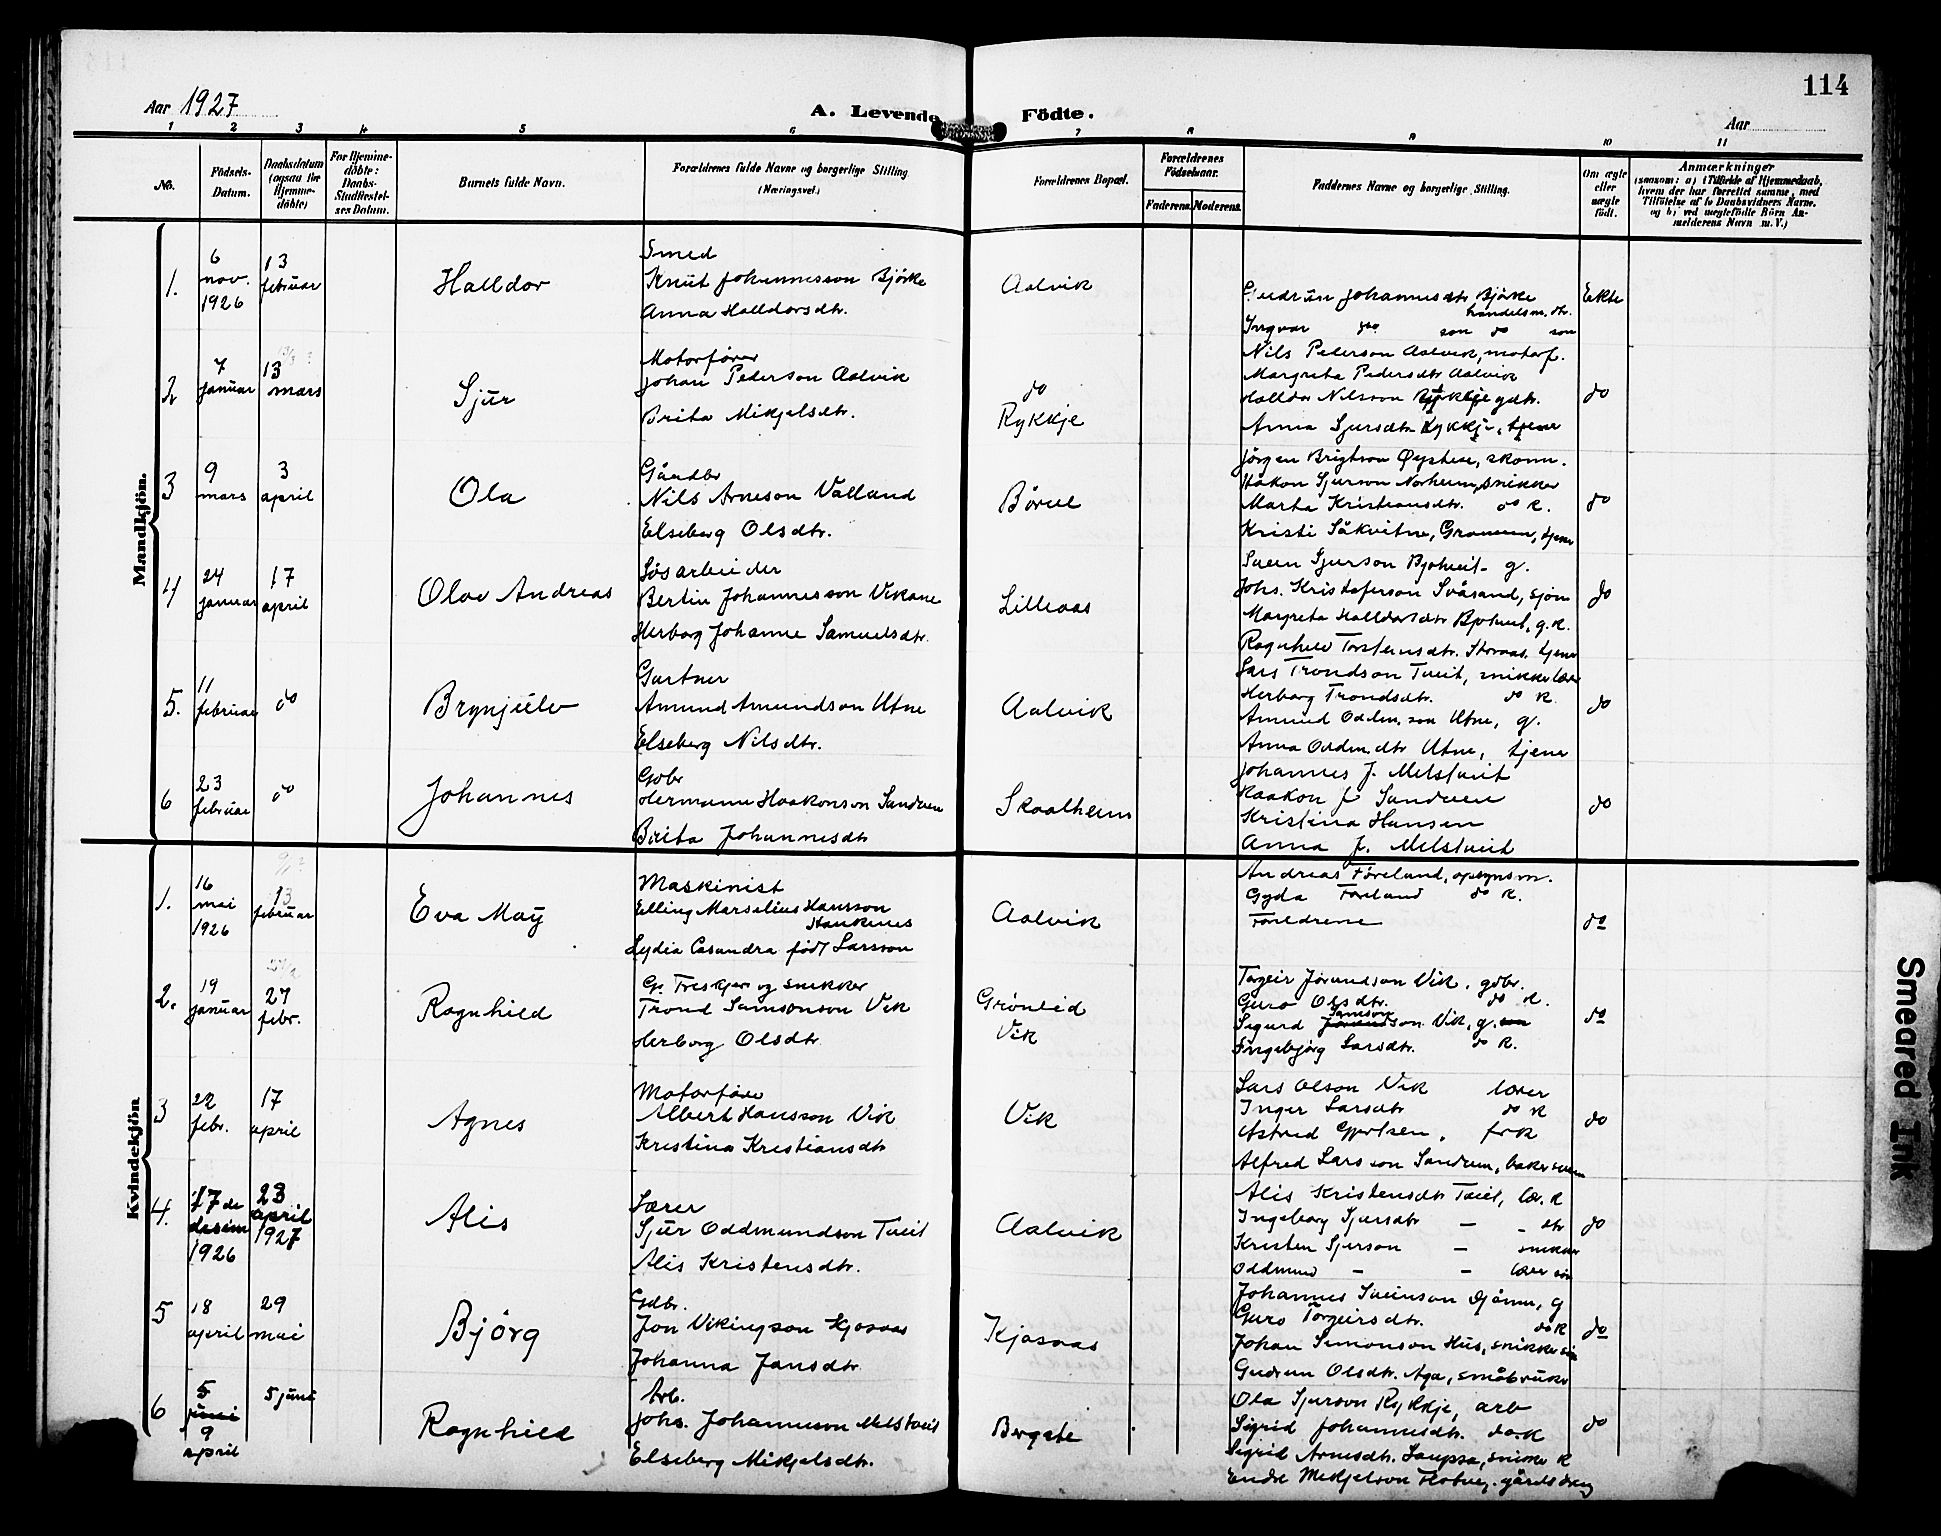 114
Aar 1927
A. Levende Födte.
Aar
1 2 3 4 5 6 7 8 9 10 11
No.
Födsels-Datum.
Daabsdatum (ogsaa for Hjemme-döbte)
For Hjemme-döbte: Daabs-Stadfæstel-ses Datum.
Barnets fulde Navn.
Forældrenes fulde Navne og borgerlige Stilling (Næringsvei.)
Forældrenes Bopæl.
Forældrenes Födselsaar.
Faderens. Moderens.
Faddernes Navne og borgerlige Stilling.
Om ægte eller uægte födt.
Anmærkninger
(saasom: a) i Tilfælde af Hjemmedaab,
hvem der har forrettet samme, med
Tilföielse af to Daabsvidners Navne,
og b) ved uægtefödte Börn An-
melderens Navn m. V.)
Mandkjön.
1.
6 nov. 1926
13 februar
Halldor
Smed
Knut Johannesson Bjørke
Anna Halldorsdtr.
Aalvik
Gudrun Johannesdtr Bjørke
handelsm. dtr.
Ingvar do son do son
Ekte
2
7 januar
13 mars
Sjur
Motorfører
Johan Pederson Aalvik
Brita Mikjelsdtr.
do
Rykkje
Nils Pederson Aalvik, motorf.
Margreta Pedersdtr Aalvik
Halldor Nilsson Rykkje gdtr.
Anna Sjursdtr Rykkje, tjener
do
3
9 mars
3 april
Ola
Gårdbr
Nils Arneson Valland
Elseberg Olsdtr.
Börve
Jørgen Brigtson Øystese, skom.
Håkon Sjurson Norheim, snikker
Marta Kristiansdtr. do k.
Kristi Såkvitne, Gravem, tjener
do
4
24 januar
17 april
Olav Andreas
Løsarbeider
Bertin Johannesson Vikane
Herborg Johanne Samuelsdtr.
Lilleaas
Svein Sjurson Bjotveit g.
Johs. Kristoferson Svåsand, sjøm
Margreta Halldorsdtr Bjotveit, g.k.
Ragnhild Torsteinsdtr. Storaas, tjener
do
5.
11 februar
do
Brynjulv
Gartner
Amund Amundson Utne
Elseberg Nilsdtr.
Aalvik
Lars Trondson Tveit, snikkelærer
Herborg Trondsdtr. do k.
Amund Oddm.son Utne, g.
Anna Oddm.dtr Utne, tjener
do
6
23 februar
do
Johannes
Gdbr
Hermann Haakonson Sandven
Brita Johannesdtr
Skaalheim
Johannes J. Melstveit
Haakon J Sandven
Kristina Hansen
Anna J. Melstveit
do
Kvindekjön
1.
16 mai 1926
13 februar
Eva May
Maskinist
Elling Marselius Hansson
Haukenes
Lydia Casandra født Larsson
Aalvik
Andreas Føreland, opsynsm.
Gyda Føreland do k.
Foreldrene
do
2.
19 januar
27 febr.
Ragnhild
G. Treskjær og snikker
Trond Samsonson Vik
Herborg Olsdtr
Grønlid
Vik
Torgeir Jørundson Vik, gdbr.
Guro Olsdtr. do k.
Samson
Sigurd Jørundson Vik, g. son
Ingebjørg Larsdtr. do k.
do
3
22 febr.
17 april
Agnes
Motorfører
Albert Hansson Vik
Kristina Kristiansdtr
Vik
Lars Olson Vik lærer
Inger Larsdtr do k
Astrid Gjertsen, frk
Alfred Larsson Sandven, bakersvenn
do
4.
17de desem 1926
23 april 1927
Alis
Lærer
Sjur Oddmundson Tveit
Alis Kristensdtr.
Aalvik
Alis Kristensdtr Tveit, lær. k
Ingeborg Sjursdtr - - dtr
Kristen Sjurson - snikker
Oddmund - - lærer søn
do
5
18 april
29 mai
Björg
Gdbr.
Jon Vikingson Kjosaas
Johanna Jansdtr
Kjosaas
Johannes Sveinson Djønne, g
Guro Torgeirsdtr. do k
Johan Simonson Hus, snikke søn
Gudrun Olsdtr. Aga, småbruker
do
6
5 juni
9 april
5 juni
Ragnhild
Arb.
Johs. Johanneson Melstveit
Elseberg Mikjelsdtr.
Bergate
Ola Sjurson Rykkje, arb
Sigrid Johannesdtr. do k
Sigrid Arnesdtr. Laupsa, snikke k
Endre Mikjelson Flotve, gårdsdreng
do
Smeared Ink